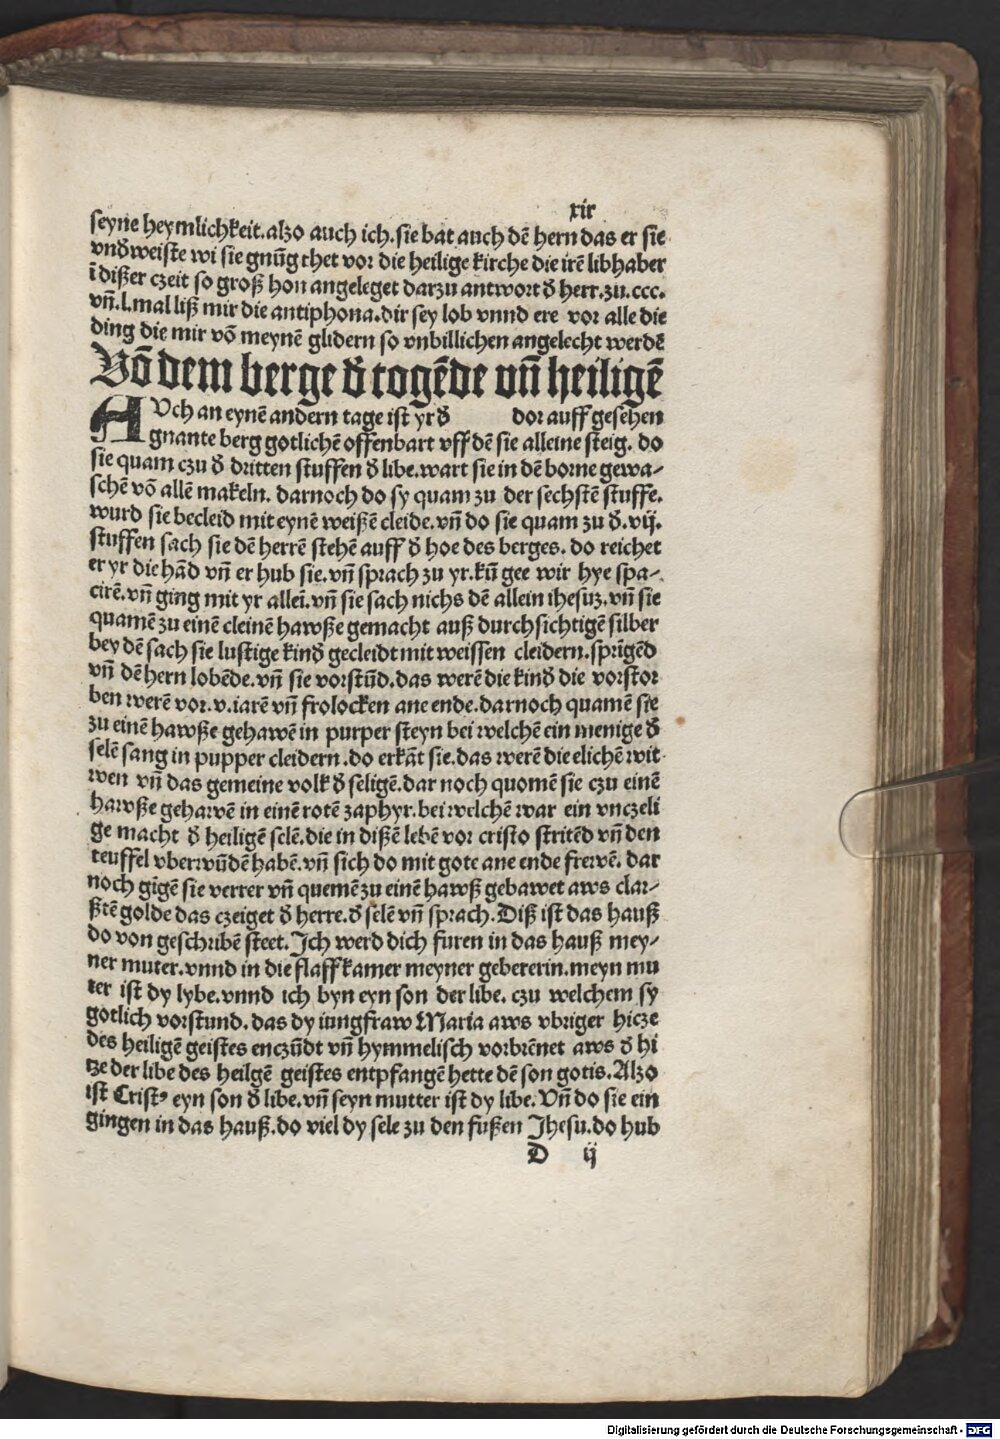 xix
seyne heymlichkeit. alzo auch ich. sie bat auch dē hern das er sie
vnd̕ weiste wi sie gnūg thet vor die heilige kirche die irē libhaber
ī dißer czeit so groß hon angeleget darzu antwort d̕ herr. zu. ccc.
vn̄. l. mal liß mir die antiphona. dir sey lob vnnd ere vor alle die
ding die mir vō meynē glidern so vnbillichen angelecht werdē
Vō dem berge d̕ togēde vn̄ heiligē
AVch an eynē andern tage ist yr d̕ dor auff gesehen
gnante berg gotlichē offenbart vff dē sie alleine steig. do
sie quam czu d̕ dritten stuffen d̕ libe. wart sie in dē borne gewa-
schē vō allē makeln. darnoch do sy quam zu der sechstē stuffe.
wurd sie becleid mit eynē weißē cleide. vn̄ do sie quam zu d̕. vij.
stuffen sach sie dē herrē stehē auff d̕ hoe des berges. do reichet
er yr die hād vn̄ er hub sie. vn̄ sprach zu yr. kū gee wir hye spa-
cirē. vn̄ ging mit yr alleī. vn̄ sie sach nichs dē allein ihesuz. vn̄ sie
quamē zu einē cleinē hawße gemacht auß durchsichtigē silber
bey dē sach sie lustige kind̕ gecleidt mit weissen cleidern. sprīgēd
vn̄ dē hern lobēde. vn̄ sie vorstūd. das werē die kind̕ die vorstor
ben werē vor. v. iarē vn̄ frolocken ane ende. darnoch quamē sie
zu einē hawße gehawē in purper steyn bei welchē ein menige d̕
selē sang in pupper cleidern. do erkāt sie. das werē die elichē wit-
wen vn̄ das gemeine volk d̕ seligē. dar noch quomē sie czu einē
hawße gehawē in einē rotē zaphyr. bei welchē war ein vnczeli
ge macht d̕ heiligē selē. die in dißē lebē vor cristo stritēd vn̄ den
teuffel vberwūdē habē. vn̄ sich do mit gote ane ende frewē. dar
noch gīgē sie verrer vn̄ quemē zu einē hawß gebawet aws clar-
ßtē golde das czeiget d̕ herre. d̕ selē vn̄ sprach. Diß ist das hauß
do von geschribē steet. Ich werd dich furen in das hauß mey-
ner muter. vnnd in die slaffkamer meyner gebererin. meyn mu
ter ist dy lybe. vnnd ich byn eyn son der libe. czu welchem sy
gotlich vorstund. das dy iungfraw Maria aws vbriger hicze
des heiligē geistes enczūdt vn̄ hymmelisch vorbrēnet aws d̕ hi
tze der libe des heilgē geistes entpfangē hette dē son gotis. Alzo
ist Cristꝰ eyn son d̕ libe. vn̄ seyn mutter ist dy libe. Vn̄ do sie ein
gingen in das hauß. do viel dy sele zu den fußen Jhesu. do hub
D ij
Digitalisierung gefördert durch die Deutsche Forschungsgemeinschaft - DFG